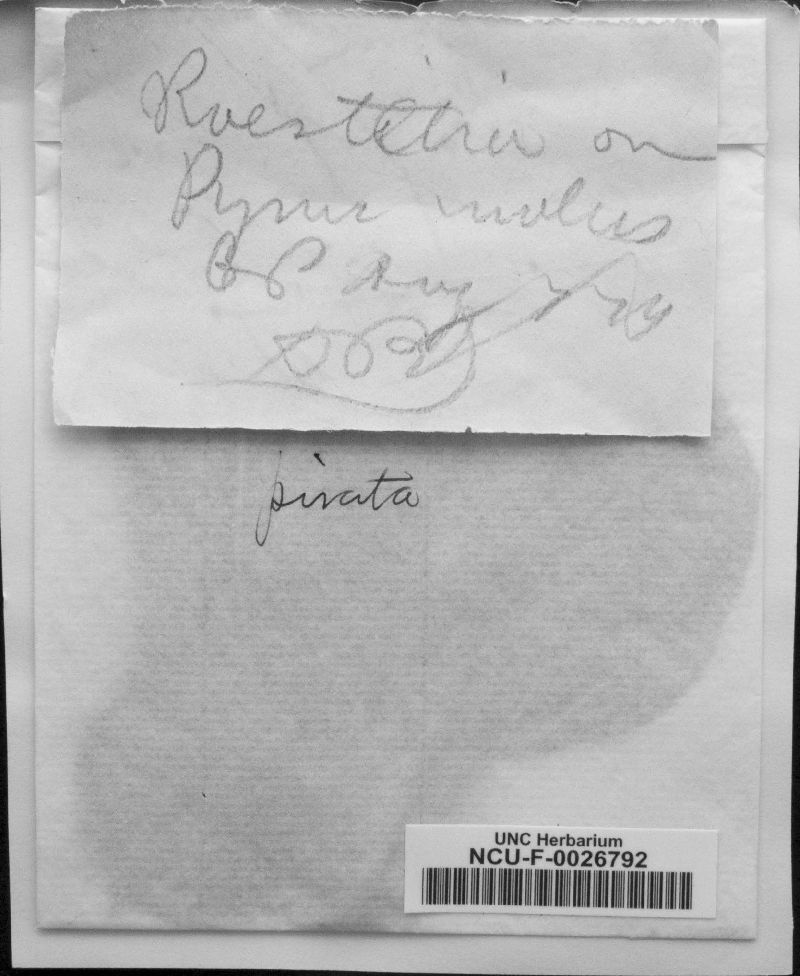 Roestelia on
Pyrus malus
Aug
pirata
UNC Herbarium
NCU-F-0026792